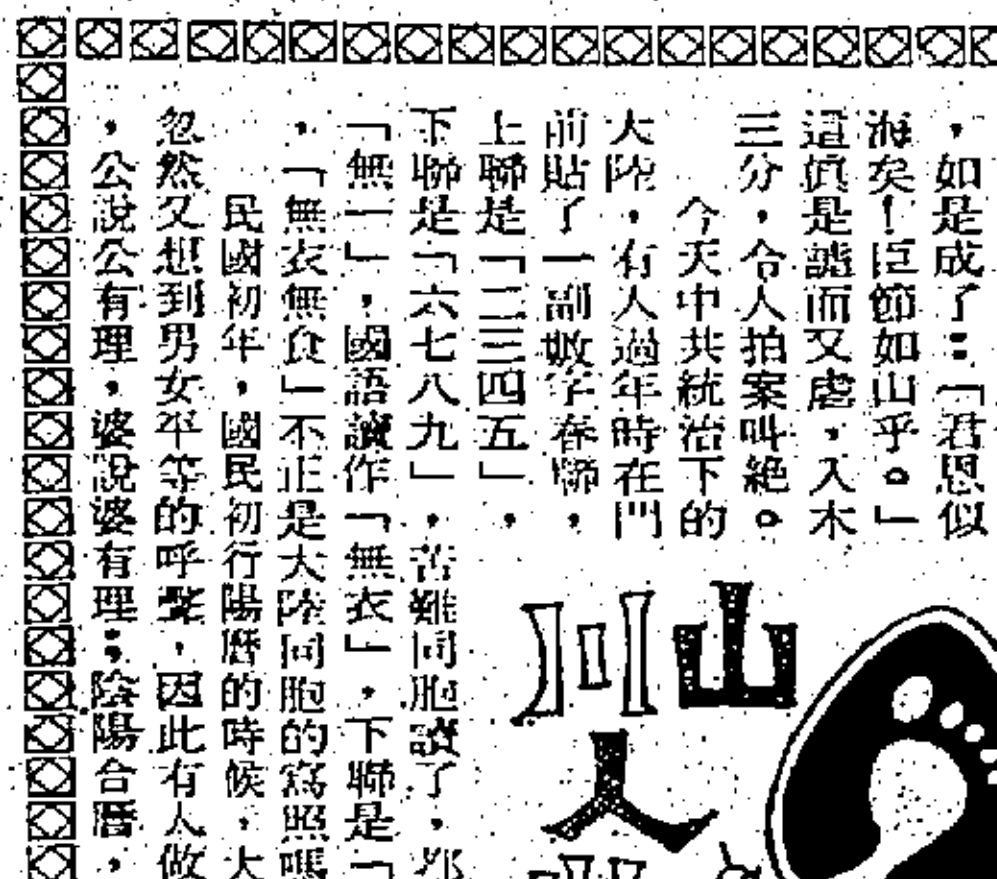 ，如是成了：「君恩似
海矣！臣節如山乎。」
這真是謔而又虐，入木
三分，令人拍案叫絕。
今天中共統治下的
大陸，有人過年時在門
前貼了一副數字春聯，
上聯是「二三四五」，
下聯是「六七八九」，苦難同胞讀了，都
「無一」，國語讀作「無衣」，下聯是「
，「無衣無食」不正是大陸同胞的寫照嗎
民國初年，國民初行陽曆的時候，大
忽然又想到男女平等的呼聲，因此有人做
，公說公有理，婆說婆有理；陰陽合曆，
山川
人